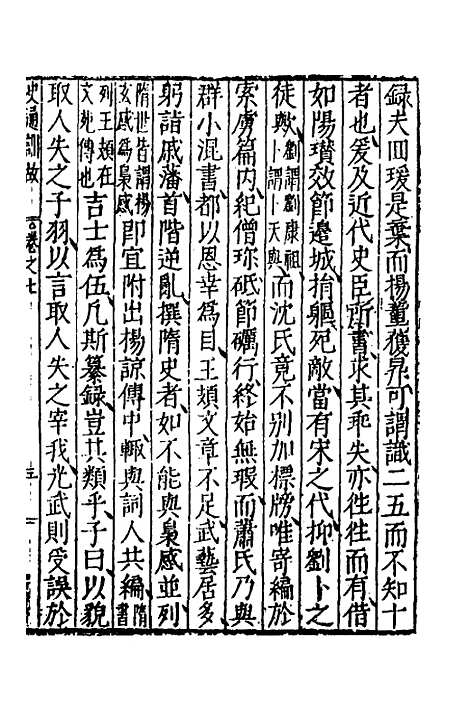 錄夫回瑗是棄而揚董獲昇可謂識二五而不知十
者也爰及近代史臣所書求其乖失亦徃徃而有借
如陽瓚效節邉城捐軀死敵當有宋之代抑劉卜之
徒歟劉謂劉康祖卜謂卜天與而沈氏竟不别加標牓唯寄編於
索虜篇内紀僧珍砥節礪行終始無瑕而蕭氏乃與
群小混書都以恩幸爲目王頍文章不足武藝居多
躬詣戚藩首階逆亂撰隋史者如不能與梟感並列
隋世皆謂楊玄感爲梟感即宜附出楊諒傳中輙與詞人共編隋書
列王頍在文𫟍傳也吉士爲伍凡斯纂録豈其類乎子曰以貌
取人失之子羽以言取人失之宰我光武則受誤於
史通訓故 卷之七